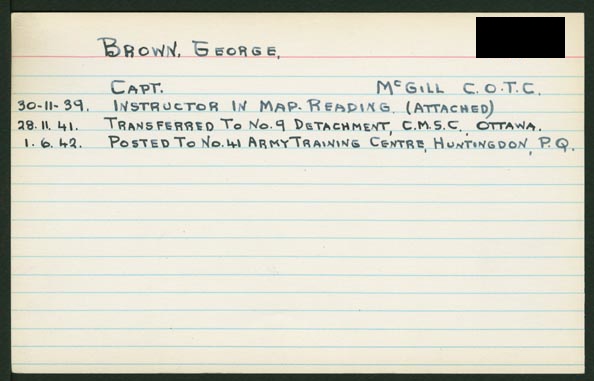 BROWN, GEORGE,
CAPT. McGILL C.O.T.C.
30-11-39. INSTRUCTOR IN MAP-READING. (ATTACHED)
28.11.41. TRANSFERRED TO No.9 DETACHMENT, C.M.S.C., OTTAWA.
1.6.42. POSTED TO No.41 ARMY TRAINING CENTRE, HUNTINGDON, P.Q.